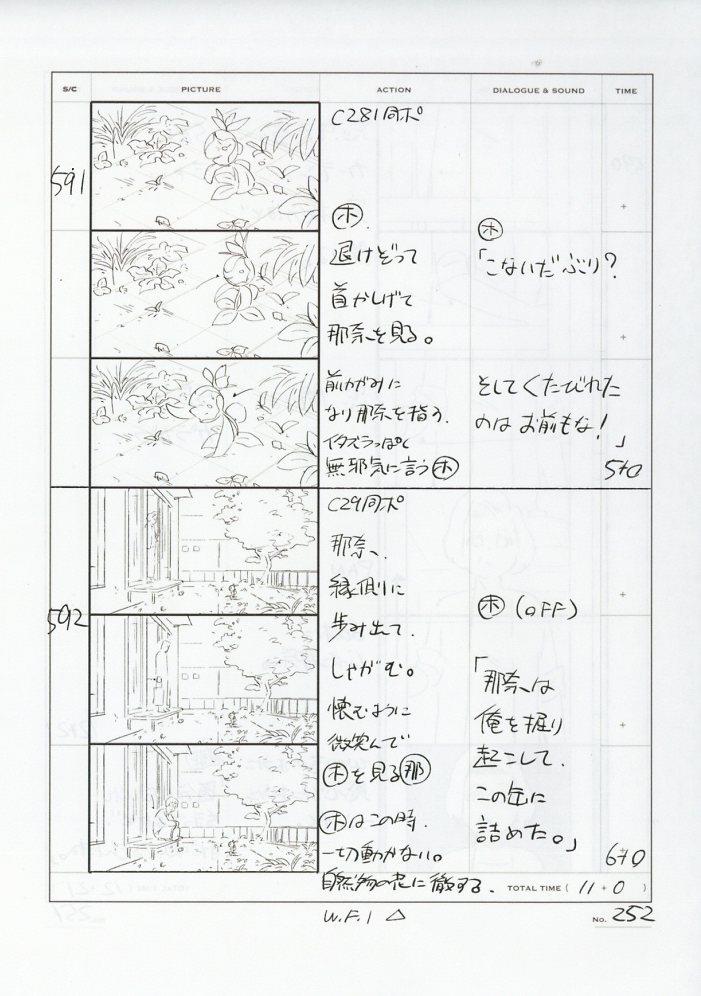 S/C PICTURE ACTION DIALOGUE & SOUND TIME
591
C281同ポ
ホ
退けぞって
首かしげて
那奈を見る。
前かがみに
なり那奈を指う、
イタズラっぽく
無邪気に言うホ
ホ
「こないだぶり?
そしてくたびれた
のはお前もな!」
5+0
592
C29同ポ
那奈、
縁側に
歩み出て、
しゃがむ。
懐むように
微笑んで
ホを見る那
ホはこの時、
一切動かない。
自然物の花に徹する、
ホ (OFF)
「那奈は
俺を掘り
起こして、
この缶に
詰めた。」
6+0
TOTAL TIME ( 11 + 0 )
W.F.1 △
No. 252